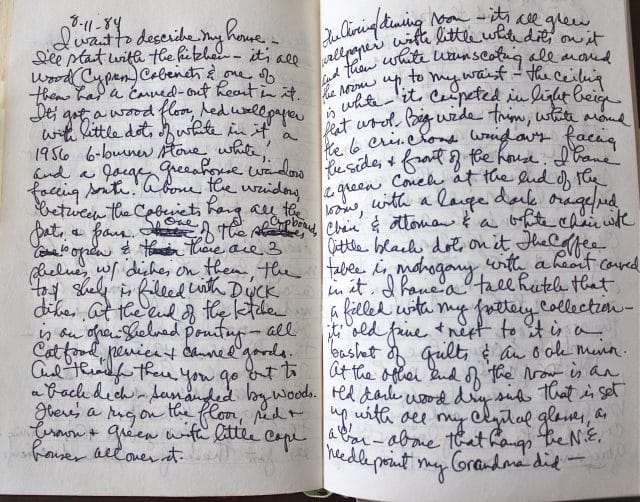 8-11-84
I want to describe my house -
I'll start with the kitchen - it's all
wood (Cypress) Cabinets & one of
them has a carved-out heart in it.
It's got a wood floor, red wallpaper
with little dots of white in it, a
1956 6-burner stove white,
and a large Greenhouse window
facing south. Above the window,
between the Cabinets hang all the
pots & pans. One of the Cupboards
is open & there are 3
shelves w/ dishes on them, the
top shelf is filled with Duck
dishes. At the end of the kitchen
is an open-shelved pantry - all
Cat food, and canned goods.
And through there you go out to
a back deck - surrounded by woods.
There's a rug on the floor, red &
brown & green with little cape
houses all over it.
The living/dining room - it's all green
wallpaper with little white dots on it
and then white wainscoting all around
the room up to my waist - the ceiling
is white - it's carpeted in light beige
flat wool. Big wide trim, white around
the 6 criss cross windows facing
the side & front of the house. I have
a green couch at the end of the
room, with a large dark orange/red
chair & ottoman & a white chair with
little black dots on it. The Coffee
table is mahogany with a heart carved
in it. I have a tall hutch that
is filled with my pottery collection -
it's old pine & next to it is a
basket of Quilts & an oak mirror.
At the other end of the room is an
old dark wood dry sink that is set
up with all my crystal glasses, as
a bar - above that hangs the N.E.
needlepoint my Grandma did -